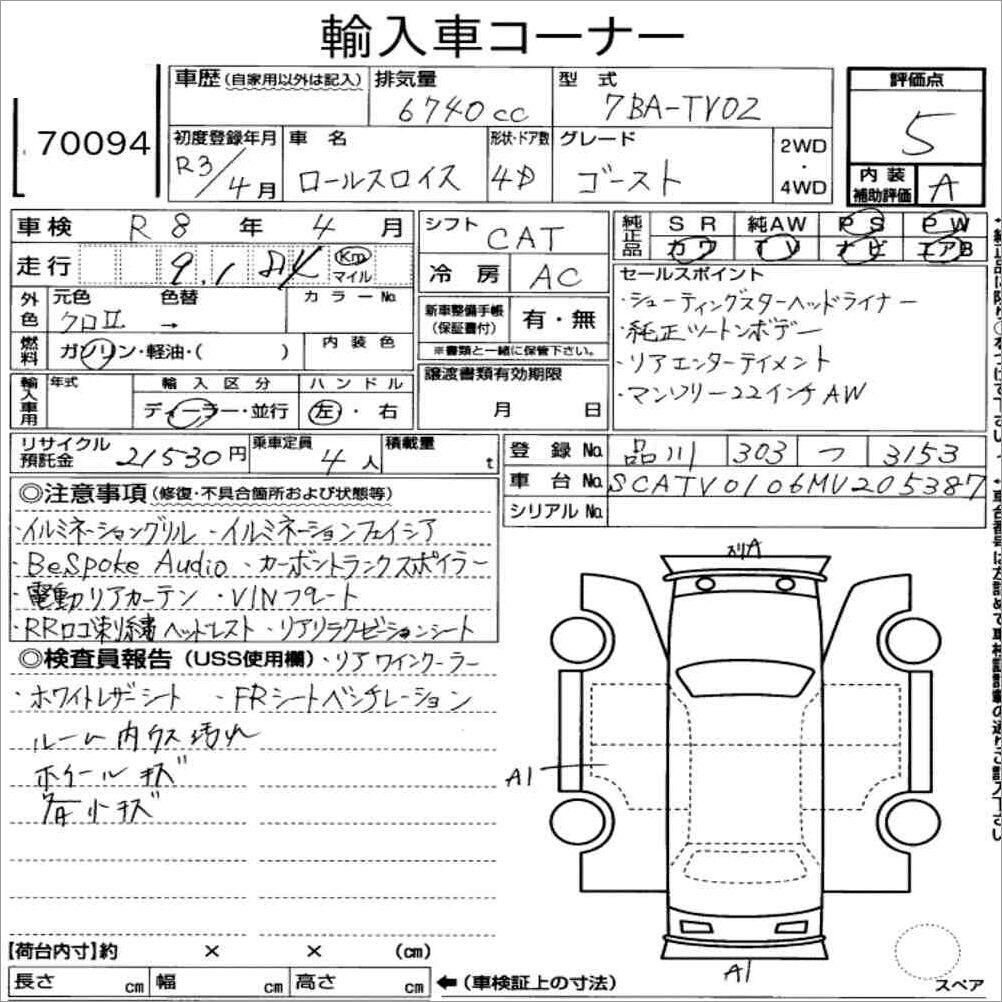 輸入車コーナー
70094
車歴(自家用以外は記入) 排気量 6740cc 型式 7BA-TV02 評価点 5
初度登録年月 R3/4月 車名 ロールスロイス 形状・ドア数 4D グレード ゴースト 2WD・4WD 内装補助評価 A
車検 R8年4月 シフト CAT 純正品 SR 純AW PS PW
カワ TV ナビ エアB
走行 9.1千K Km マイル 冷房 AC
外色 元色 クロⅡ 色替 → カラーNo.
新車整備手帳(保証書付) 有・無
※書類と一緒に保管下さい。
燃料 ガソリン・軽油・( ) 内装色
輸入車用 年式 輸入区分 ディーラー・並行 ハンドル 左・右
譲渡書類有効期限 月 日
セールスポイント
・シューティングスターヘッドライナー
・純正ツートンボデー
・リアエンターテイメント
・マンソリー22インチAW
リサイクル預託金 21530円 乗車定員 4人 積載量 t
登録No. 品川 303 つ 3153
車台No. SCATV0106MU205387
シリアルNo.
◎注意事項(修復・不具合箇所および状態等)
・イルミネーショングリル ・イルミネーションフェイシア
・BeSpoke Audio ・カーボントランクスポイラー
・電動リアカーテン ・VINプレート
・RRロゴ刺繍ヘッドレスト ・リアリラクゼーションシート
◎検査員報告(USS使用欄)・リアワインクーラー
・ホワイトレザーシート ・FRシートベンチレーション
ルーム内ウス汚れ
ホイールキズ
小キズ
A
A1
A1
スペア
【荷台内寸】約 × × (cm)
長さ cm 幅 cm 高さ cm ←(車検証上の寸法)